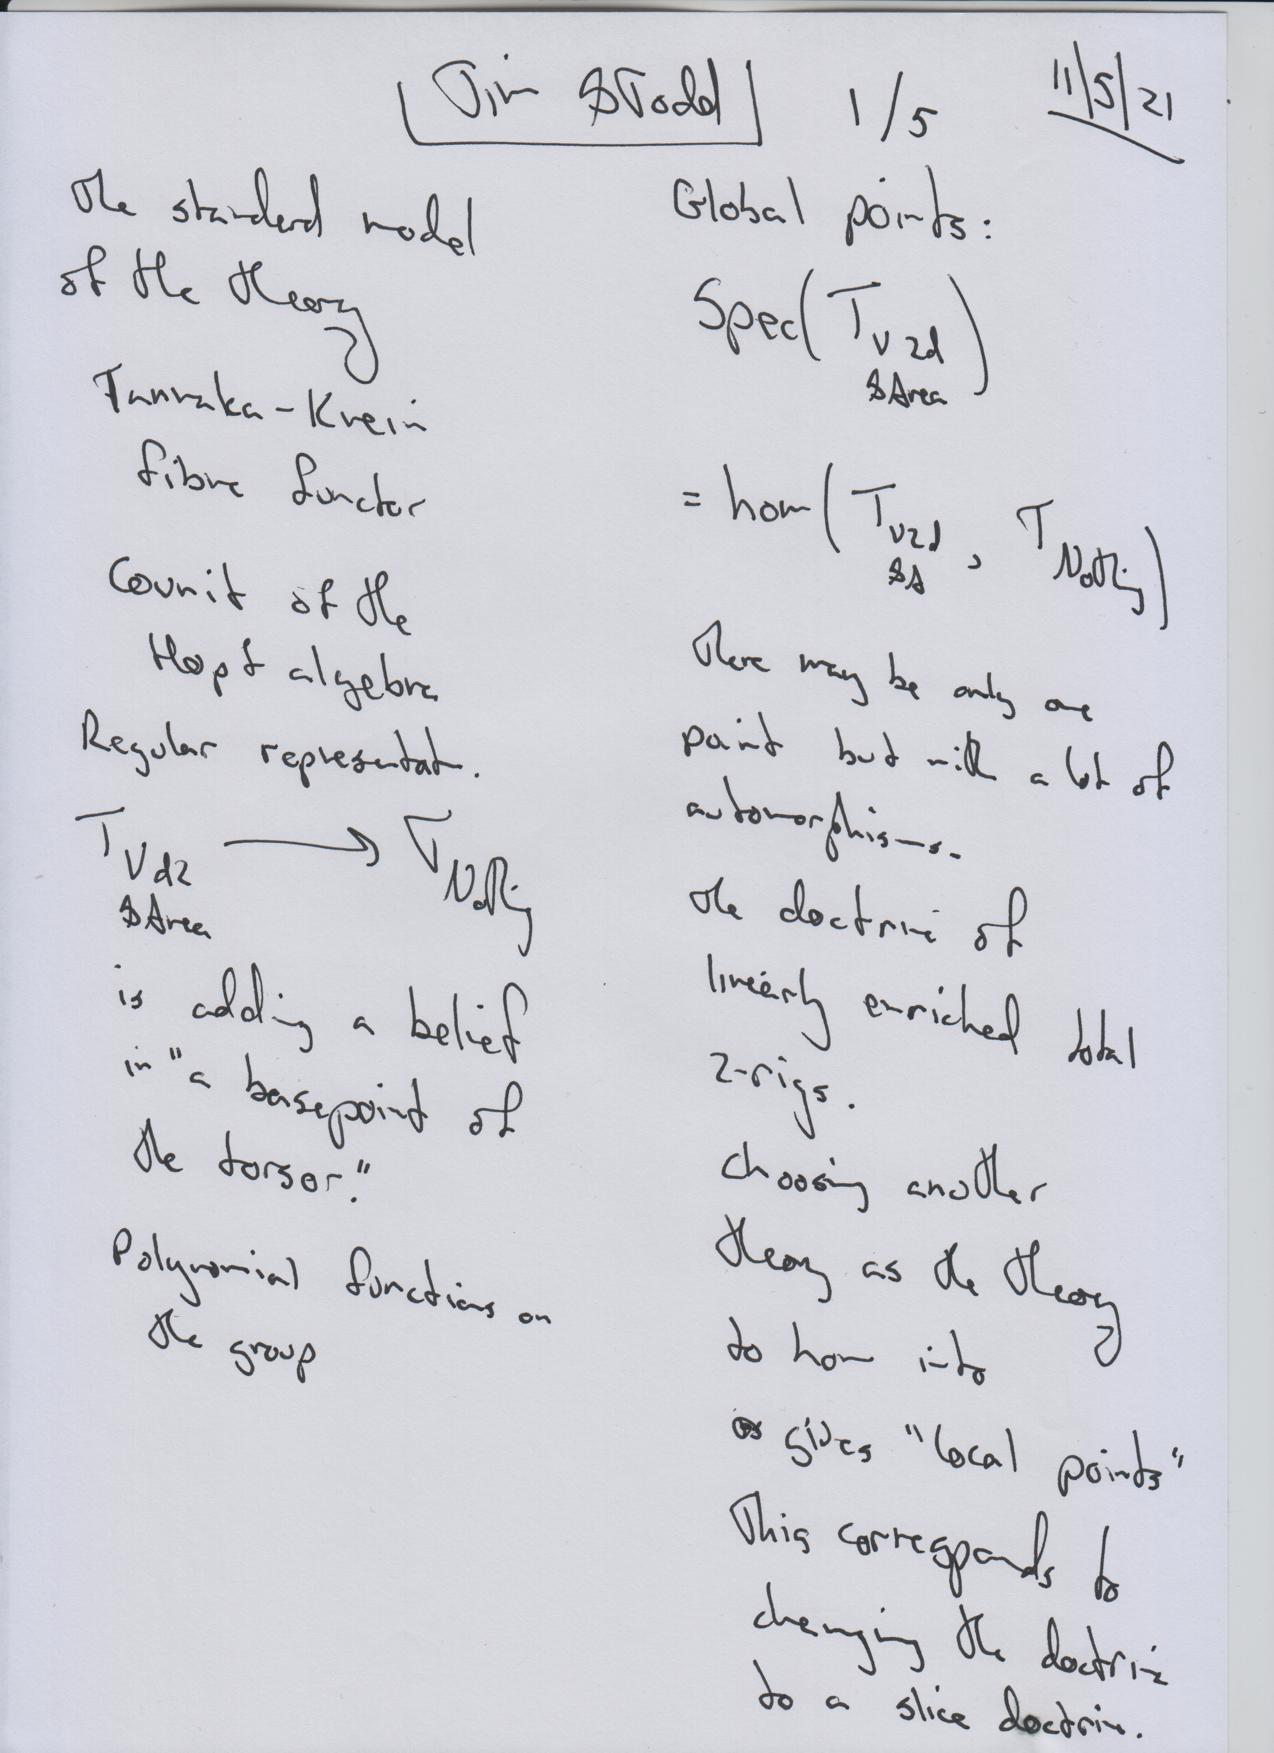 Jim & Todd 1/5 11/5/21
The standard model
of the theory
Tannaka-Krein
fibre functor
Counit of the
Hopf algebra
Regular representat.
T V d2 & Area → T Nothing
is adding a belief
in "a basepoint of
the torsor."
Polynomial functions on
the group
Global points:
Spec(T V 2d & Area)
= hom(T V2d & A, T Nothing)
There may be only one
point but with a lot of
automorphisms.
The doctrine of
linearly enriched total
2-rigs.
Choosing another
theory as the theory
to hom into
gives "local points"
This corresponds to
changing the doctrine
to a slice doctrine.